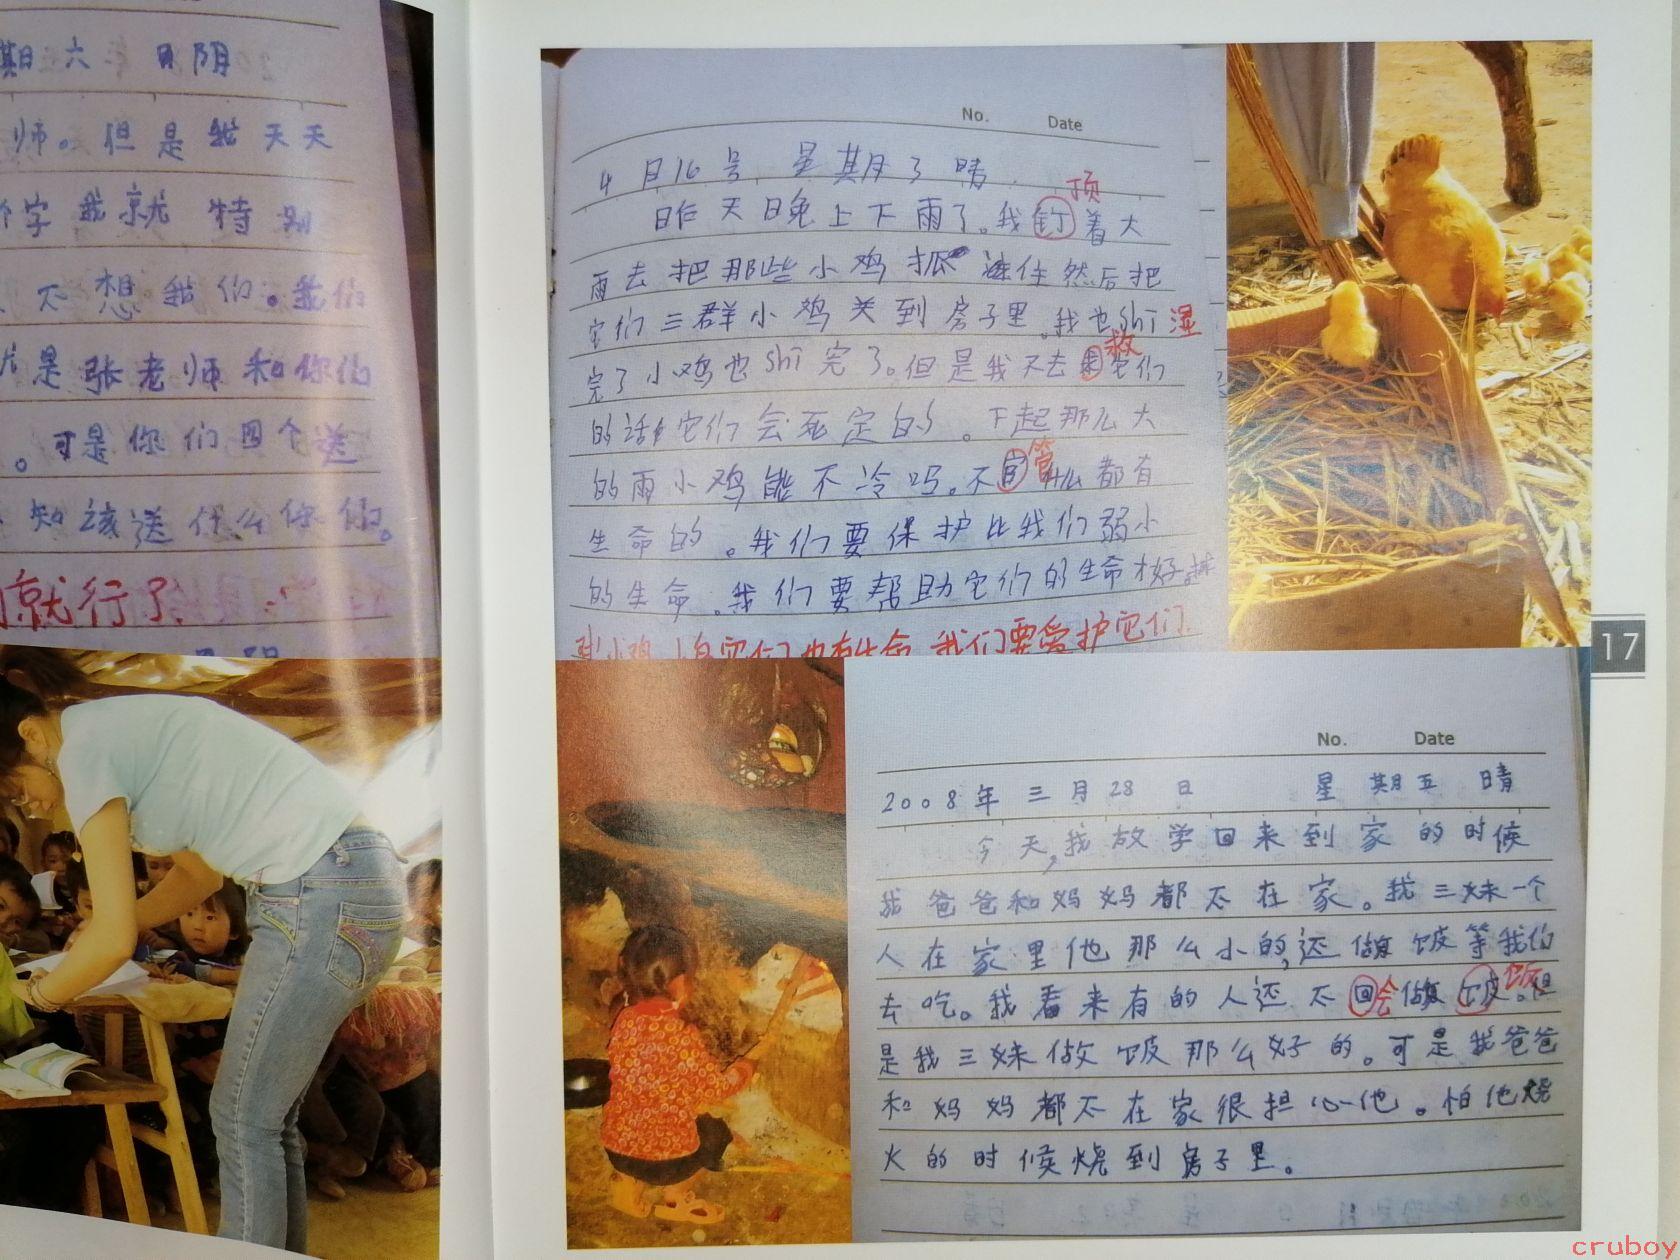 期六 阴
师。但是我天天
字我就 特别
不想我们。我们
是张老师和你们
。可是你们四个送
知该送什么你们。
就行了.
No. Date
4月16号 星期了 晴
顶
昨天日晚上下雨了。我钉着大
雨去把那些小鸡抓 住然后把
它们三群小鸡关到房子里。我也shī 湿
救
完了小鸡也shī完了。但是我不去 它们
的话它们会死定的。下起那么大
管
的雨小鸡能不冷吗。不 什么都有
生命的。我们要保护比我们弱小
的生命。我们要帮助它们的生命才好
小鸡 它们也有生命 我们要爱护它们.
17
No. Date
2008年 三月28日 星期五 晴
今天,我放学回来到家的时候
我爸爸和妈妈都不在家。我三妹一个
人在家里他那么小的,还做饭等我们
去吃。我看来有的人还不回会做饭饭。但
是我三妹做饭那么好的。可是我爸爸
和妈妈都不在家很担心他。怕他烧
火的时候烧到房子里。
cruboy